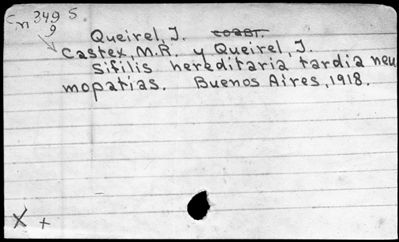 Queirel, J. coabt.
Castex, M.R. y Queirel, J.
Sifilis hereditaria tardia neu
mopatias. Buenos Aires, 1918.
X +